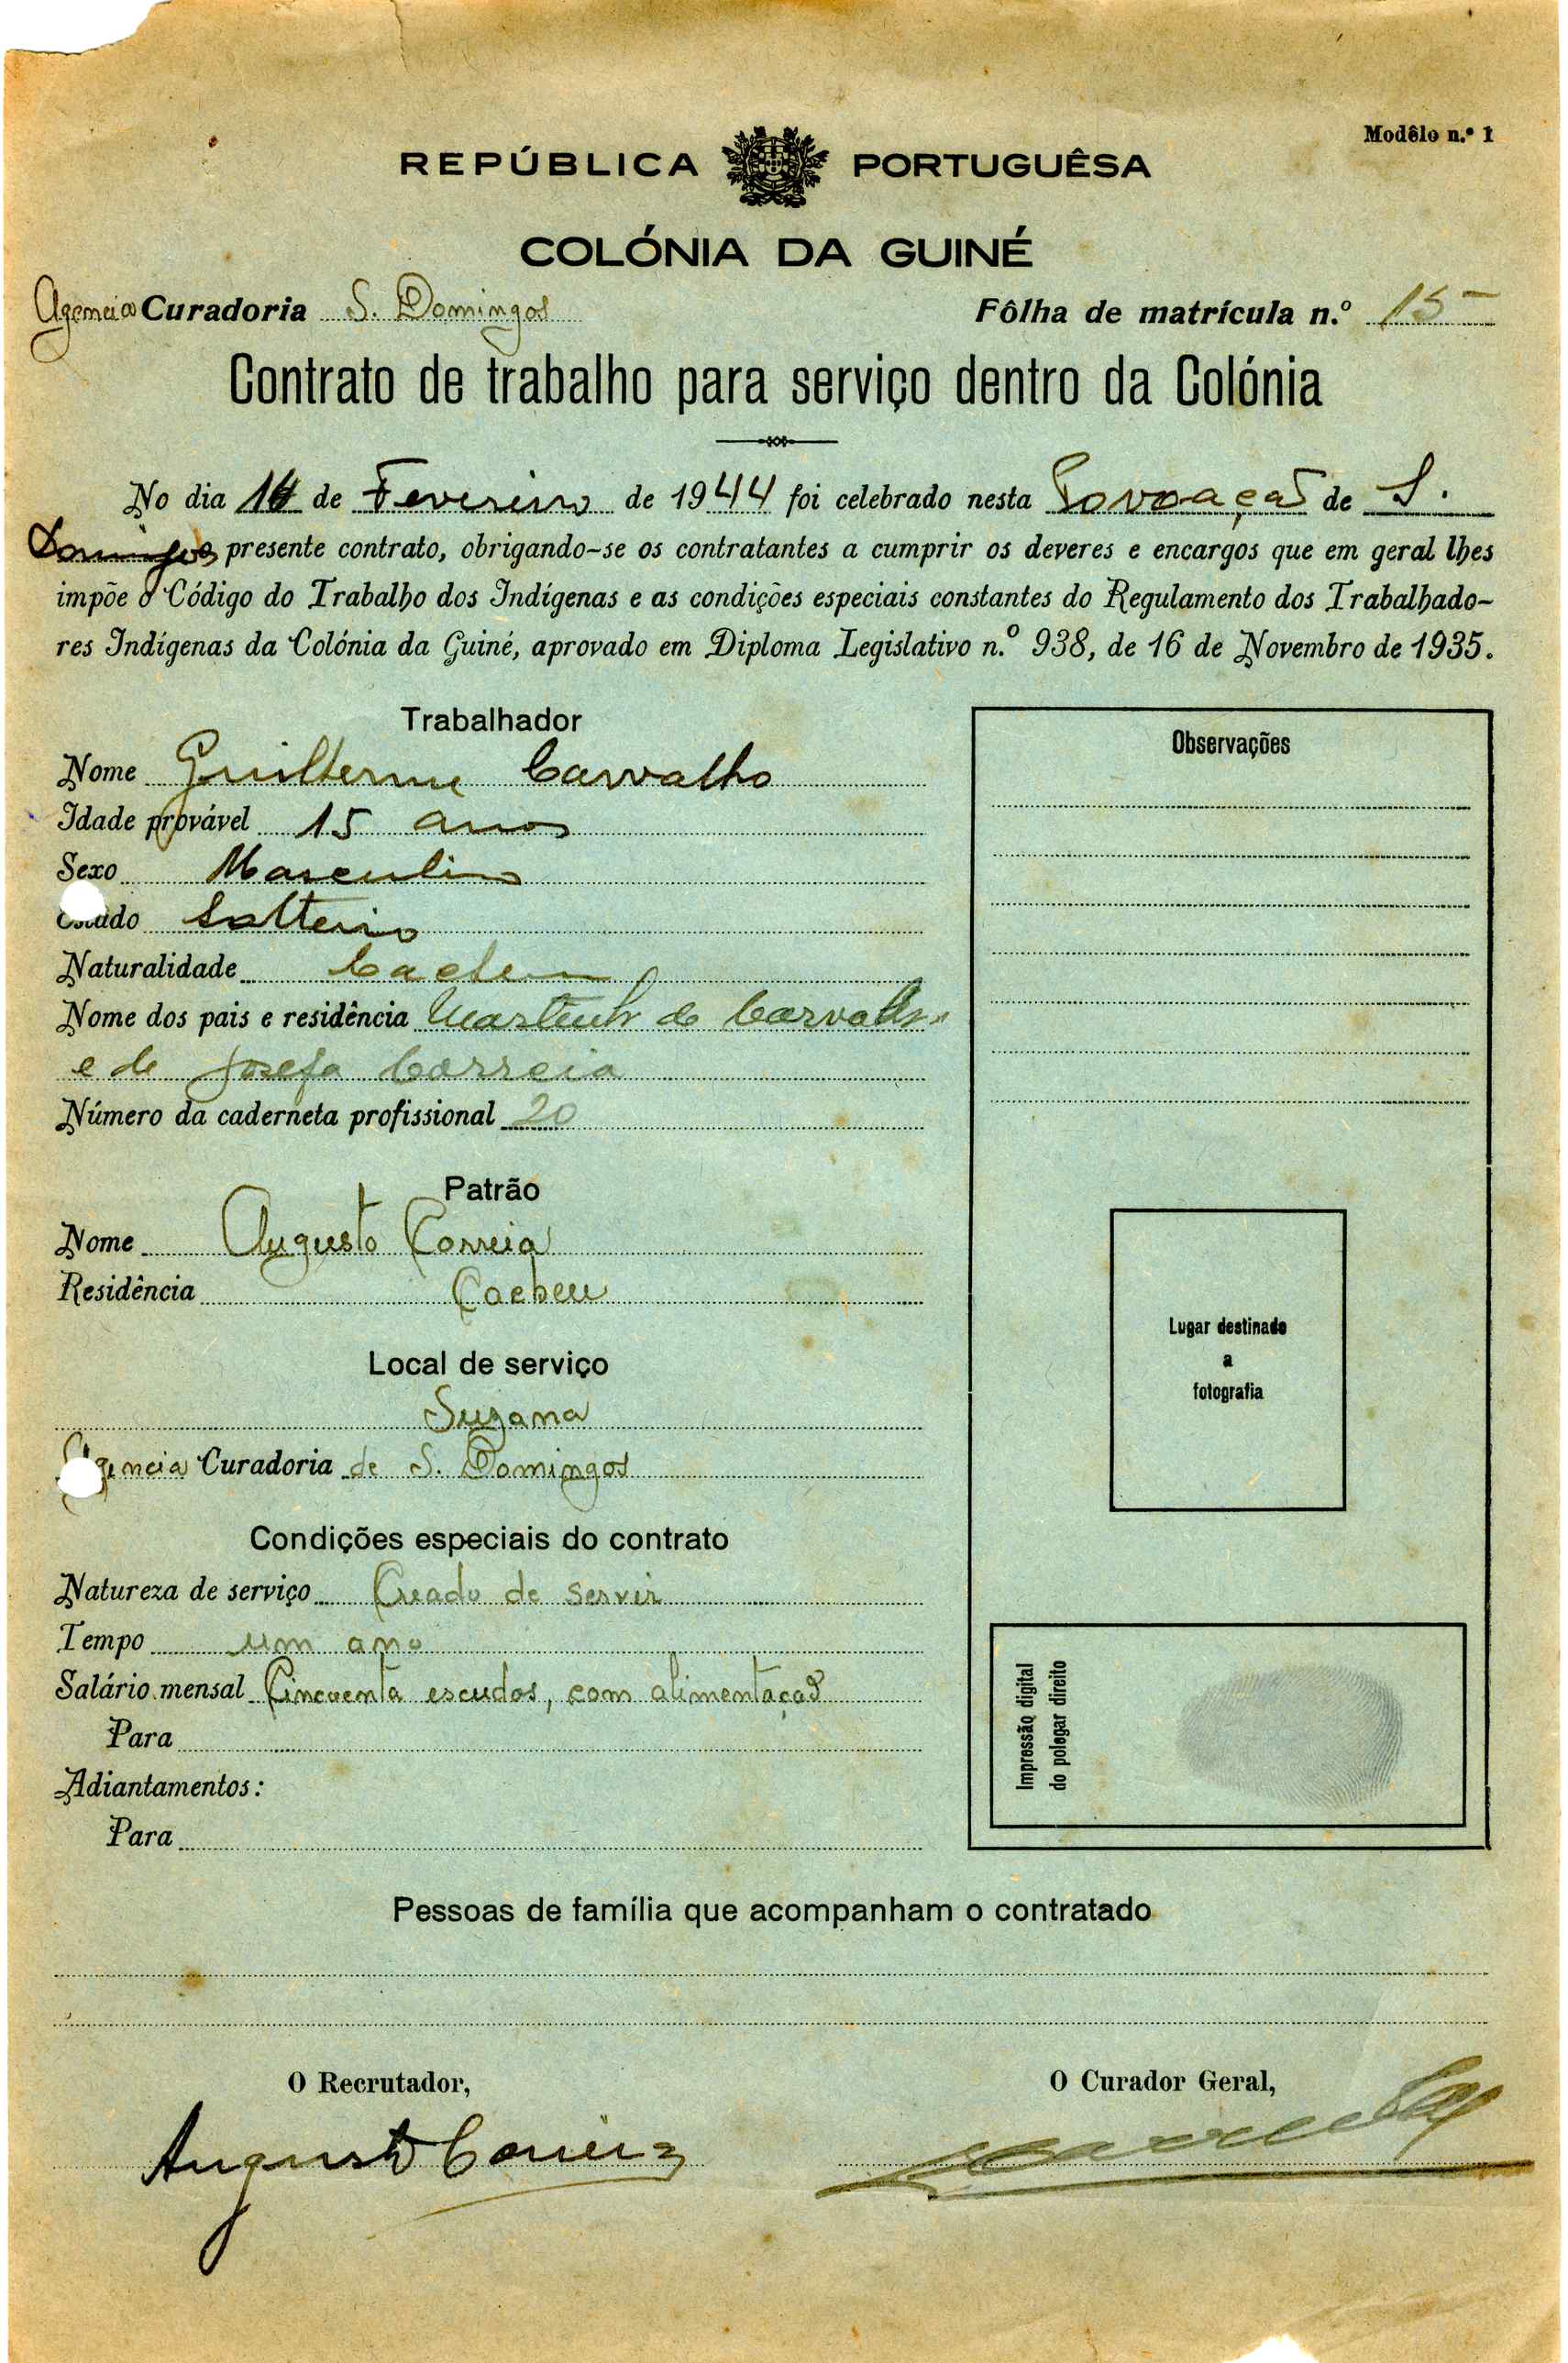 Modêlo n.º 1
REPÚBLICA PORTUGUÊSA
COLÓNIA DA GUINÉ
Agencia Curadoria S. Domingos Fôlha de matrícula n.º 15
Contrato de trabalho para serviço dentro da Colónia
No dia de Fevereiro de 1944 foi celebrado nesta Povoação de S.
Domingos presente contrato, obrigando-se os contratantes a cumprir os deveres e encargos que em geral lhes
impõe o Código do Trabalho dos Indígenas e as condições especiais constantes do Regulamento dos Trabalhado-
res Indígenas da Colónia da Guiné, aprovado em Diploma Legislativo n.º 938, de 16 de Novembro de 1935.
Trabalhador
Nome Guilherme Carvalho
Idade provável 15 anos
Sexo Masculino
Estado Solteiro
Naturalidade Cacheu
Nome dos pais e residência Martinho de Carvalho
e de Josefa Correia
Número da caderneta profissional 20
Patrão
Nome Augusto Correia
Residência Cacheu
Local de serviço
Suzana
Agencia Curadoria de S. Domingos
Condições especiais do contrato
Natureza de serviço Creado de servir
Tempo um ano
Salário mensal Cincoenta escudos, com alimentação
Para
Adiantamentos:
Para
Observações
Lugar destinado
a
fotografia
Impressão digital
do polegar direito
Pessoas de família que acompanham o contratado
O Recrutador, O Curador Geral,
Augusto Correia